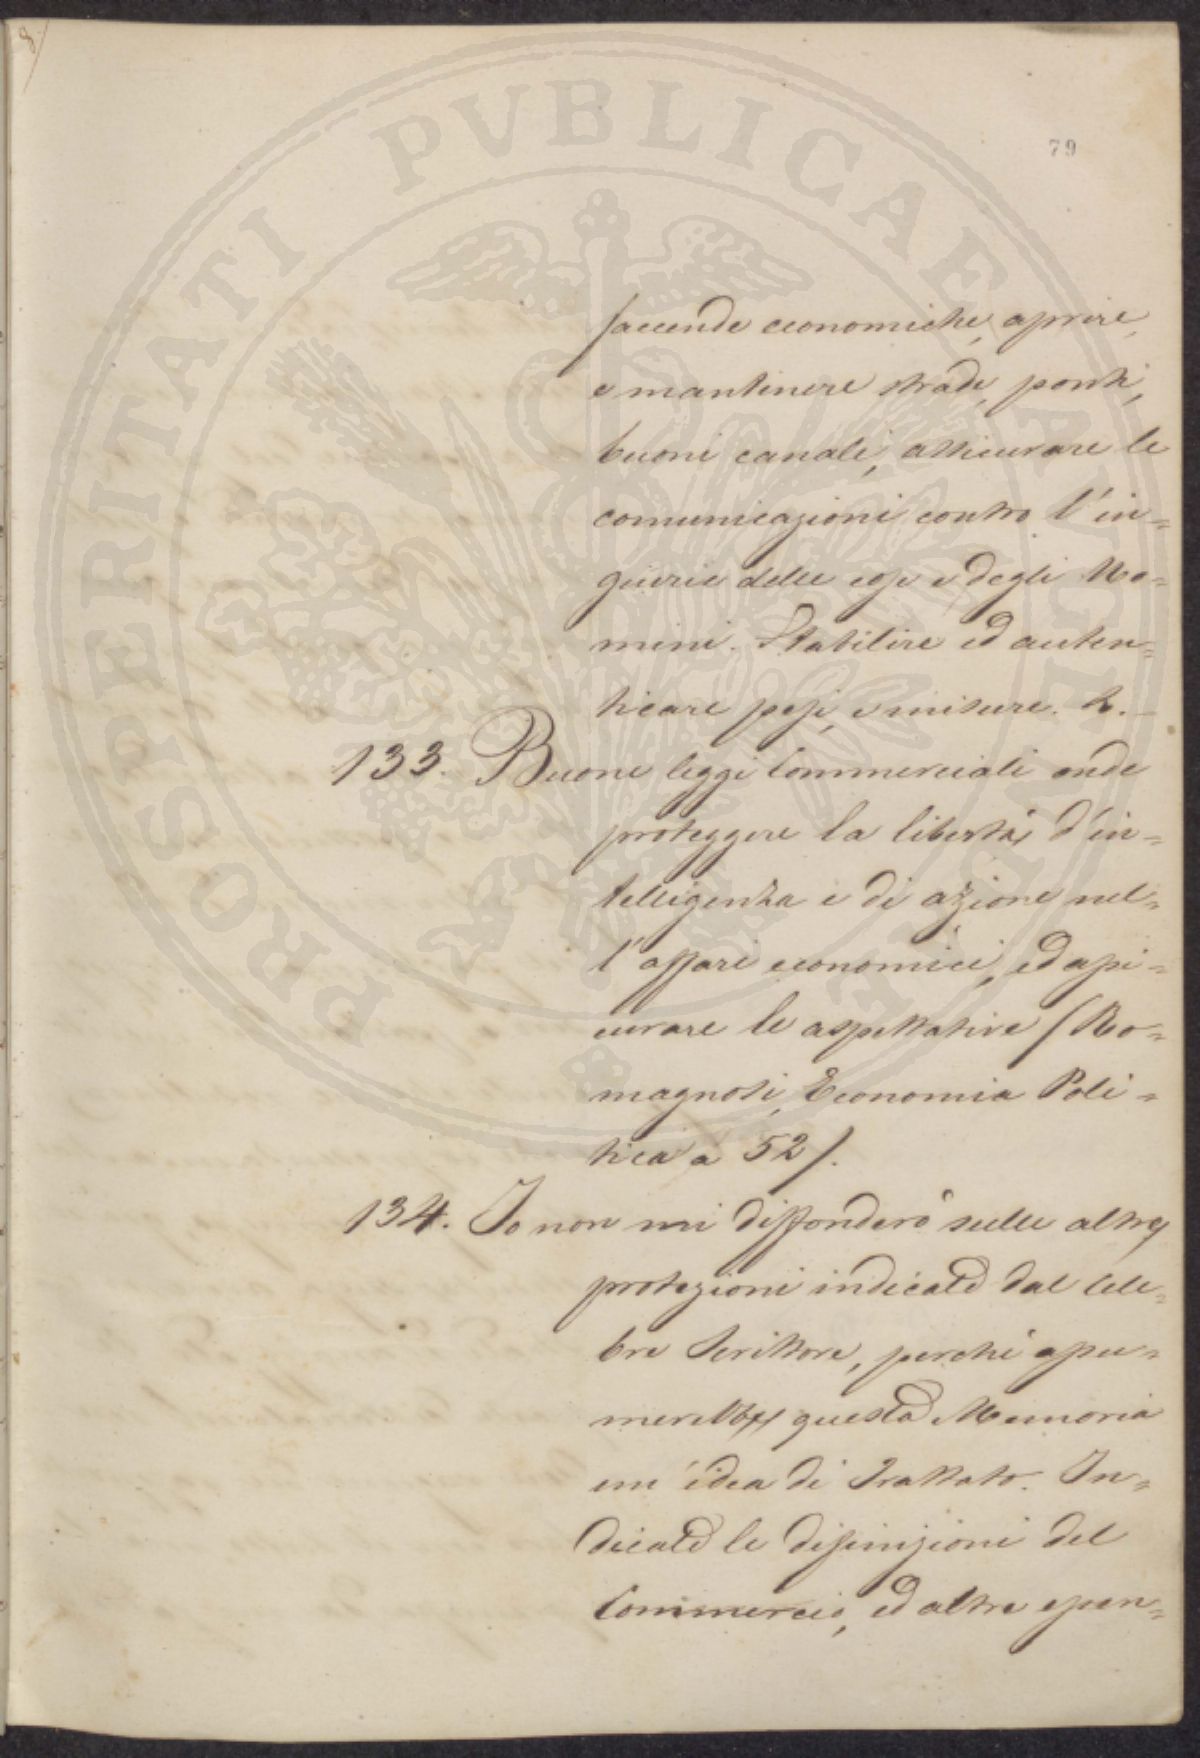 8
79
PROSPERITATI PVBLICAE AVGENDAE
faccende economiche, aprire,
e mantenere strade, ponti,
buoni canali, assicurare le
comunicazioni contro l'in=
giurie delle cose e degli Uo=
mini. Stabilire ed auten=
ticare pesi, e misure.
133. Buone leggi Commerciali onde
proteggere la libertà d'in=
telligenza e di azione nel=
l'affari economici, ed assi=
curare le aspettative (Ro=
magnosi, Economia Poli=
tica a 52).
134. Io non mi diffonderò sulle altre
protezioni indicate dal Cele=
bre Scrittore, perchè assu=
merebbe questa Memoria
un' idea di Trattato. In=
dicate le diffinizioni del
Commercio, ed altre essen=